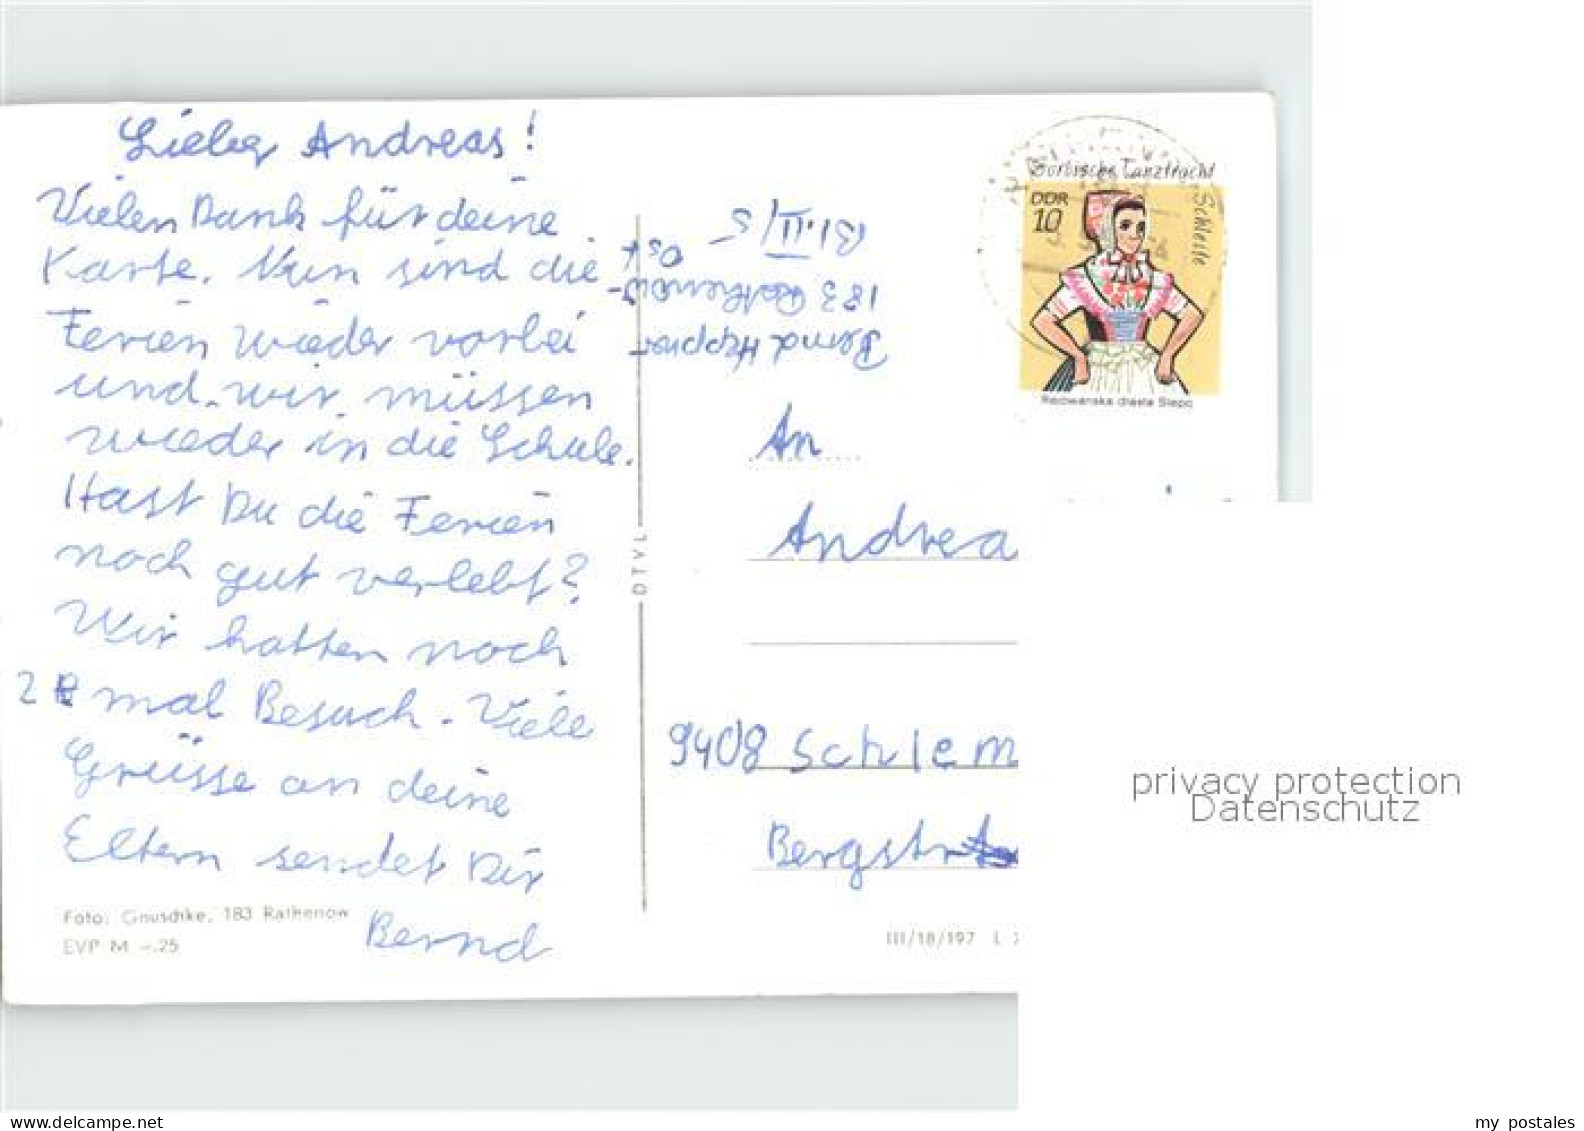 Lieber Andreas!
Vielen Dank für deine
Karte. Nun sind die
Ferien wieder vorbei
und wir müssen
wieder in die Schule.
Hast Du die Ferien
noch gut verlebt?
Wir hatten noch
2 mal Besuch. Viele
Grüsse an deine
Eltern sendet Dir
Bernd
Foto: Gnuschke, 183 Rathenow
EVP M -.25
DTVL
Bernd
183 Rathenow-
Ost
Sorbische Tanztracht
Schleife
DDR
10
Rejowanska drasta Slepo
An
Andrea
9408 Schlem
Bergstr
III/18/197 L
privacy protection
Datenschutz
my postales